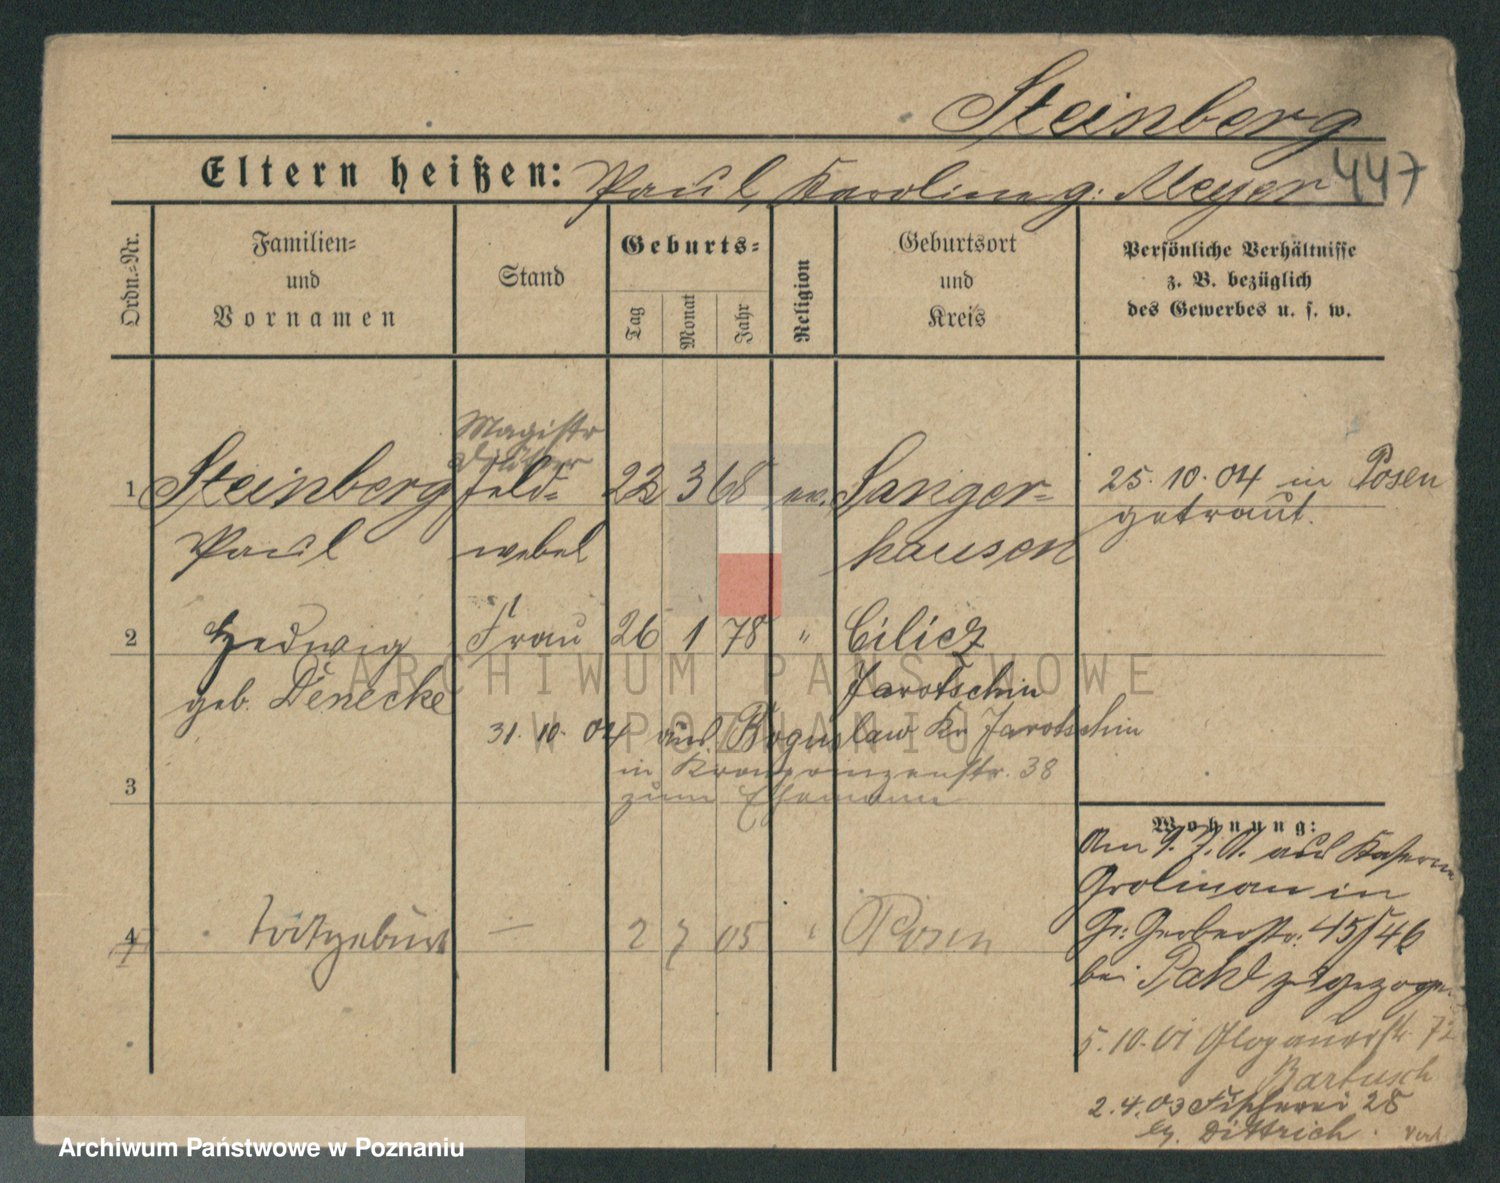 Steinberg
Eltern heißen: Paul, Karoline g: Meyer 447
Ordn.-Nr.
Familien-
und
Vornamen
Stand
Geburts-
Tag
Monat
Jahr
Religion
Geburtsort
und
Kreis
Persönliche Verhältnisse
z. B. bezüglich
des Gewerbes u. s. w.
Magistr
1 Steinberg Feld- 22 3 68 ev. Sanger-
Paul webel hausen
25. 10. 04 in Posen
getraut.
2 Hedwig Frau 26 1 78 " Cilicz
geb. Denecke Jarotschin
31. 10. 04 aus Boguslaw Kr Jarotschin
in Kronprinzenstr. 38
zum Ehemann
3
4 Totgeburt — 2 7 05 " Posen
Wohnung:
Am 9. 7. 01. aus Kaserne
Grolman in
Gr: Gerberstr: 45/46
bei Pahl zugezogen
5. 10. 01 Glogauerstr 72
Bartusch
2. 4. 03 Fischerei 28
Dittrich.
ARCHIWUM PAŃSTWOWE
W POZNANIU
Archiwum Państwowe w Poznaniu